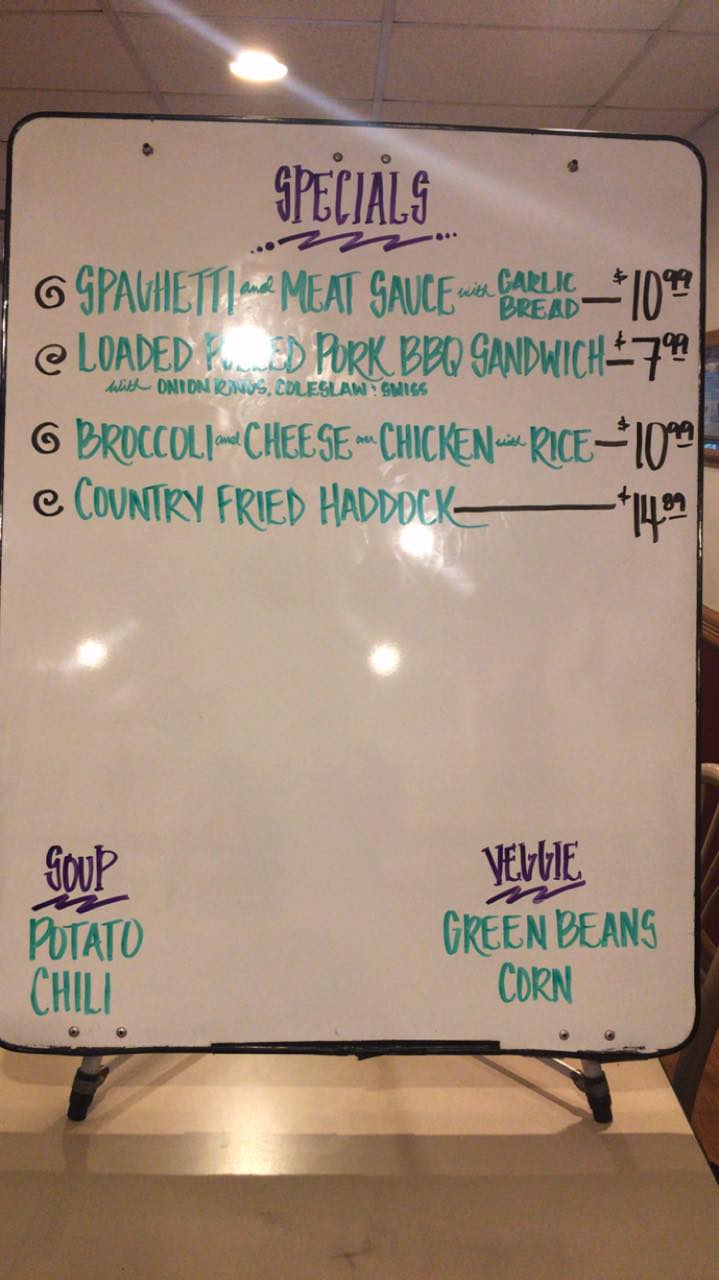 SPECIALS
SPAGHETTI and MEAT SAUCE with GARLIC BREAD — $10.99
LOADED PULLED PORK BBQ SANDWICH — $7.99
with ONION RINGS, COLESLAW & SWISS
BROCCOLI and CHEESE over CHICKEN with RICE — $10.99
COUNTRY FRIED HADDOCK — $14.89
SOUP
POTATO
CHILI
VEGGIE
GREEN BEANS
CORN